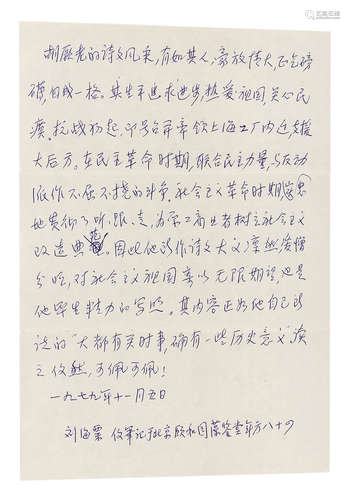 胡厥老的诗文风采,有如其人,豪放博大,正气磅
礴,自成一格。其生平追求进步,热爱祖国,关心民
瘼。抗战初起,即号召并带领上海工厂内迁支援
大后方。在民主革命时期,联合民主力量,与反动
派作不屈不挠的斗争。社会主义革命时期,
地贯彻了听、跟、走,为工商业者树立社会主义
改造典范。因此他所作诗文大义凛然,爱憎
分明,对社会主义祖国寄以无限期望,也是
他毕生精力的写照。其内容正如他自己所
说的“大都有关时事,确有一些历史意义”读
之然,可佩可佩!
一九七九年十一月五日
刘海粟 笔记于北京颐和园藻鉴堂年方八十四